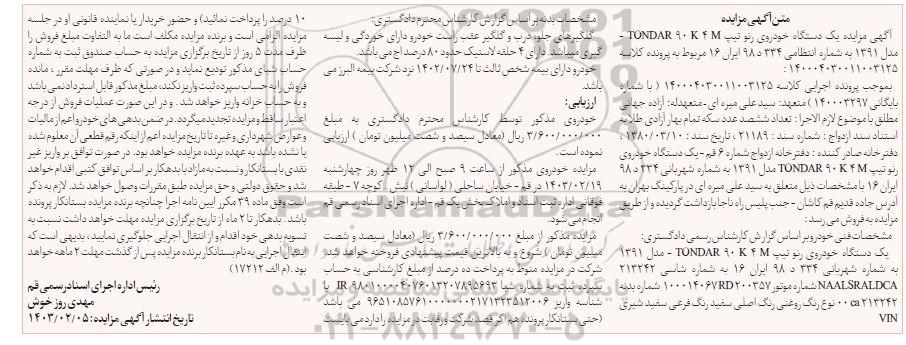 متن آگهی مزایده
آگهی مزایده یک دستگاه خودروی رنو تیپ TONDAR 90 K 4 M -
مدل ۱۳۹۱ به شماره انتظامی ۳۳۴ د ۹۸ ایران ۱۶ مربوط به پرونده کلاسه
۱۴۰۰۰۴۰۳۰۰۱۱۰۰۳۱۲۵ :
بموجب پرونده اجرایی کلاسه ۱۴۰۰۰۴۰۳۰۰۱۱۰۰۳۱۲۵ ( با شماره
بایگانی ۱۴۰۰۰۳۲۹۷ ) متعهد: سید علی میره ای - متعهدله: آزاده جهانی
مطلق با موضوع لازم الاجرا : تعداد ششصد عدد سکه تمام بهار آزادی طلا به
استناد سند ازدواج : شماره سند : ۲۱۱۸۹ ، تاریخ سند : ۱۳۸۰/۰۳/۱۰ ،
دفترخانه صادر کننده : دفترخانه ازدواج شماره ۶ قم - یک دستگاه خودروی
رنو تیپ TONDAR 90 K 4 M مدل ۱۳۹۱ به شماره شهربانی ۳۳۴ د ۹۸
ایران ۱۶ با مشخصات ذیل متعلق به سید علی میره ای در پارکینگ تهران به
آدرس جاده قدیم قم کاشان - جنب پلیس راه ناجا بازداشت گردیده و از طریق
مزایده به فروش می رسد :
مشخصات فنی خودرو بر اساس گزارش کارشناس رسمی دادگستری:
یک دستگاه خودروی رنو تیپ TONDAR 90 K 4 M - مدل ۱۳۹۱
به شماره شهربانی ۳۳۴ د ۹۸ ایران ۱۶ به شماره شاسی ۲۱۳۲۴۲
NAALSRALDCA شماره موتور 100014067RD200357 شماره بدنه
۲۱۳۲۴۲ ca ۰۰ نوع رنگ روغنی رنگ اصلی سفید رنگ فرعی سفید شیری
VIN
مشخصات بدنه بر اساس گزارش کارشناس محترم دادگستری:
گلگیرهای جلو، درب و گلگیر عقب راست خودرو دارای خوردگی و لیسه
گیری میباشد. دارای ۴ حلقه لاستیک حدود ۸۰ درصد آج می باشد.
خودرو دارای بیمه شخص ثالث تا ۱۴۰۲/۰۷/۲۴ نزد شرکت بیمه البرز می
باشد.
ارزیابی:
خودروی مذکور توسط کارشناس محترم دادگستری به مبلغ
۳/۶۰۰/۰۰۰/۰۰۰ ریال (معادل سیصد و شصت میلیون تومان ) ارزیابی
نموده است .
مزایده خودروی مذکور از ساعت ۹ صبح الی ۱۲ ظهر روز چهارشنبه
۱۴۰۳/۰۲/۱۹ در قم - خیابان ساحلی ( لواسانی ) نبش کوچه ۷ - طبقه
فوقانی اداره ثبت اسناد و املاک بخش یک قم - اداره اجرای اسناد رسمی قم
انجام می شود.
مزایده مذکور از مبلغ ۳/۶۰۰/۰۰۰/۰۰۰ ریال (معادل سیصد و شصت
میلیون تومان ) شروع و به بالاترین قیمت پیشنهادی فروخته خواهد شد.
شرکت در مزایده منوط به پرداخت ده درصد از مبلغ کارشناسی به حساب
سپرده ثبت به شماره شبا IR 980100004076013207895693 با
شناسه واریز ۹۶۵۱۰۸۵۷۶۱۰۰۰۰۰۰۰۲۱۷۱۳۲۳۵۱۲۰۰۶ می باشد
(حتی بستانکار پرونده هم اگر قصد شرکت و رقابت در مزایده را دارد می بایست
۱۰ درصد را پرداخت نمائید) و حضور خریدار یا نماینده قانونی او در جلسه
مزایده الزامی است و برنده مزایده مکلف است ما به التفاوت مبلغ فروش را
ظرف مدت ۵ روز از تاریخ برگزاری مزایده به حساب صندوق ثبت به شماره
حساب شبای مذکور تودیع نماید و در صورتی که ظرف مهلت مقرر ، مانده
فروش را به حساب سپرده ثبت واریز نکند، مبلغ مذکور قابل استرداد نمی باشد
و به حساب خزانه واریز خواهد شد . و در این صورت عملیات فروش از درجه
اعتبار ساقط و مزایده تجدید میگردد. در ضمن بدهی های خودرو اعم از مالیات
و عوارض شهرداری و غیره تا تاریخ مزایده اعم از اینکه رقم قطعی آن معلوم شده
یا نشده باشد به عهده برنده مزایده خواهد بود. در صورت توافق بر واریز غیر
نقدی با بستانکار و نسبت به مازاد با بدهکار بر اساس توافق کتبی اقدام خواهد
شد و حقوق دولتی و حق مزایده طبق مقررات وصول خواهد شد. لازم به ذکر
است وفق ماده ۳۹ مکرر آیین نامه اجرا چنانچه برنده مزایده بستانکار پرونده
باشد . بدهکار تا ۲ ماه از تاریخ برگزاری مزایده مهلت خواهد داشت نسبت به
تسویه بدهی خود اقدام و از انتقال اجرایی جلوگیری نمایید ، بدیهی است که
انتقال اجرایی به نام بستانکار برنده مزایده پس از گذشت مهلت ۲ ماهه خواهد
بود . (م الف ۱۷۲۱۲)
رئیس اداره اجرای اسناد رسمی قم
مهدی روز خوش
تاریخ انتشار آگهی مزایده: ۱۴۰۳/۰۲/۰۵